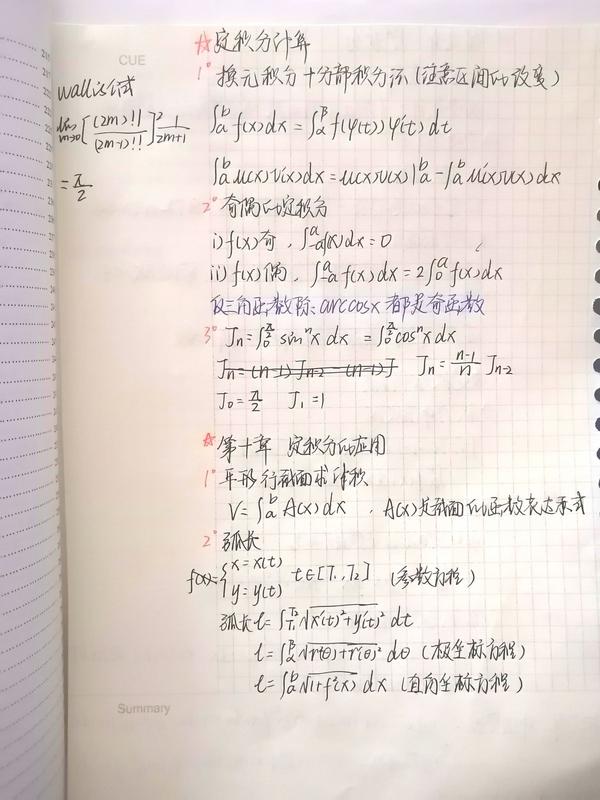 CUE
Wallis公式
lim m→∞ [(2m)!!/(2m-1)!!]² 1/(2m+1)
= π/2
☆ 定积分计算
1° 换元积分+分部积分法(注意区间的改变)
∫ₐᵇ f(x)dx = ∫_α^β f(φ(t))φ'(t)dt
∫ₐᵇ u(x)v'(x)dx = u(x)v(x)|ₐᵇ - ∫ₐᵇ u'(x)v(x)dx
2° 奇偶的定积分
i) f(x)奇, ∫₋ₐᵃ f(x)dx = 0
ii) f(x)偶, ∫₋ₐᵃ f(x)dx = 2∫₀ᵃ f(x)dx
反三角函数除 arccosx 都是奇函数
3° Jn = ∫₀^(π/2) sinⁿx dx = ∫₀^(π/2) cosⁿx dx
Jn = (n-1)/n Jn-2
J₀ = π/2 J₁ = 1
☆ 第十章 定积分的应用
1° 平行截面求体积
V = ∫ₐᵇ A(x)dx , A(x)是截面的函数表达式
2° 弧长
f(x)={ x = x(t)
y = y(t) t∈[T₁,T₂] (参数方程)
弧长 l = ∫_T₁^T₂ √(x'(t)²+y'(t)²) dt
l = ∫_α^β √(r(θ)+r'(θ)²) dθ (极坐标方程)
l = ∫ₐᵇ √(1+f'²(x)) dx (直角坐标方程)
Summary